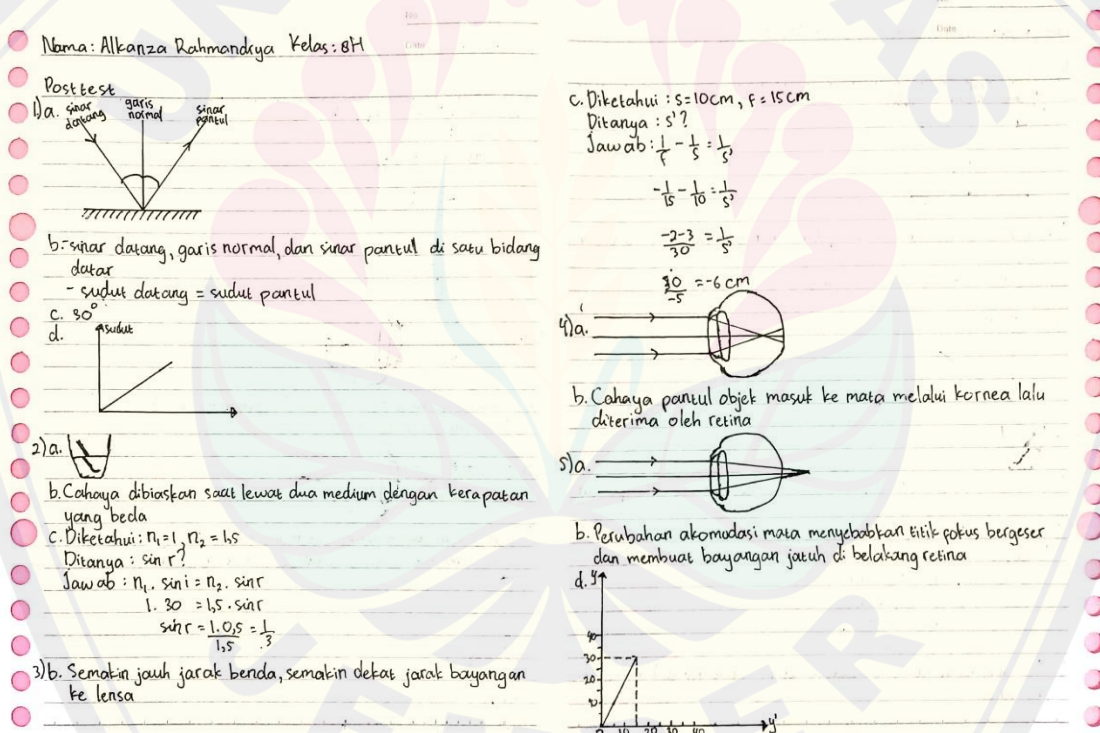 No
Date
Nama: Alkanza Rahmandya Kelas: 8H
Posttest
1) a. sinar datang garis normal sinar pantul
b. - sinar datang, garis normal, dan sinar pantul di satu bidang
datar
- sudut datang = sudut pantul
c. 30°
d. sudut
2) a.
b. Cahaya dibiaskan saat lewat dua medium dengan kerapatan
yang beda
c. Diketahui : n₁ = 1, n₂ = 1,5
Ditanya : sin r?
Jawab : n₁ . sin i = n₂ . sin r
1. 30 = 1,5 . sin r
sin r = 1.0,5/1,5 = 1/3
3) b. Semakin jauh jarak benda, semakin dekat jarak bayangan
ke lensa
Date
c. Diketahui : s = 10 cm, f = 15 cm
Ditanya : s' ?
Jawab : 1/f - 1/s = 1/s'
-1/15 - 1/10 = 1/s'
-2-3/30 = 1/s'
30/-5 = -6 cm
4) a.
b. Cahaya pantul objek masuk ke mata melalui kornea lalu
diterima oleh retina
5) a.
b. Perubahan akomodasi mata menyebabkan titik fokus bergeser
dan membuat bayangan jatuh di belakang retina
d. y
40
30
20
10
0 10 20 30 40 y'